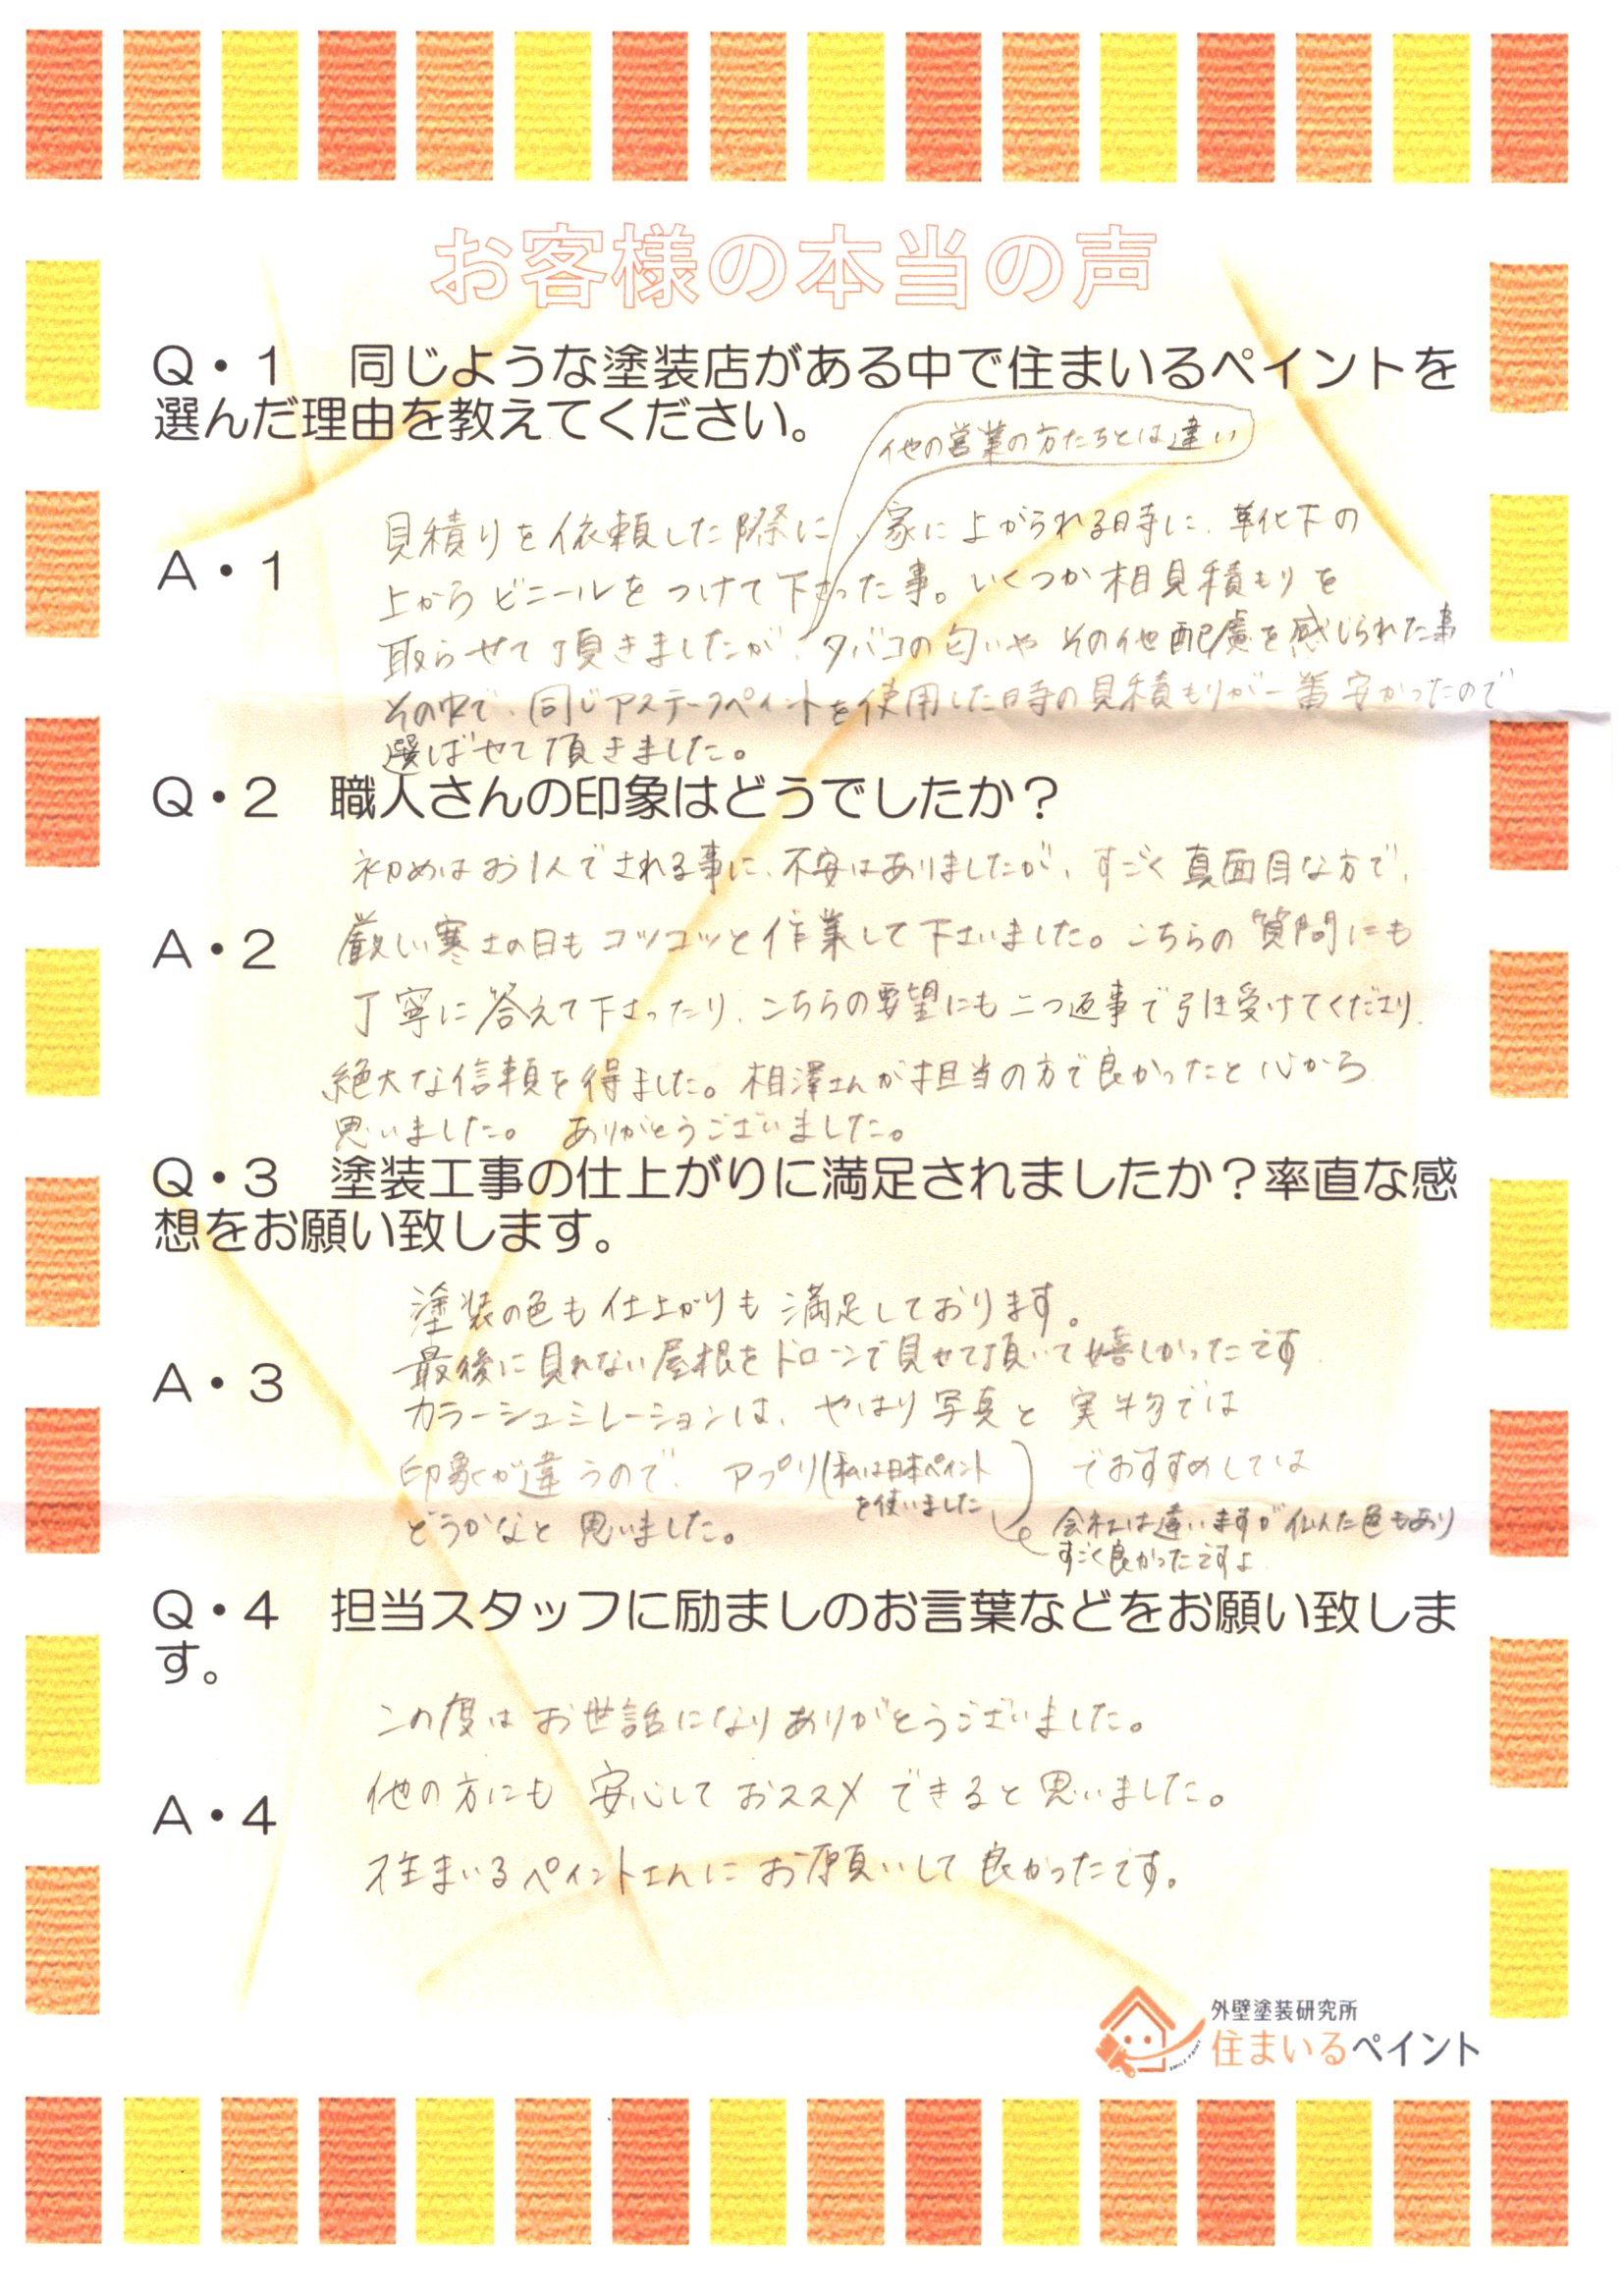 お客様の本当の声
Q・1　同じような塗装店がある中で住まいるペイントを
選んだ理由を教えてください。
他の営業の方たちとは違い
A・1
見積りを依頼した際に、家に上がられる時に、靴下の
上からビニールをつけて下さった事。いくつか相見積もりを
取らせて頂きましたが、タバコの匂いやその他配慮を感じられた事
その中で、同じアステックペイントを使用した時の見積もりが一番安かったので
選ばせて頂きました。
Q・2　職人さんの印象はどうでしたか？
A・2
初めはお1人でされる事に、不安はありましたが、すごく真面目な方で、
厳しい寒さの日もコツコツと作業して下さいました。こちらの質問にも
丁寧に答えて下さったり、こちらの要望にも二つ返事で引き受けてくださり、
絶大な信頼を得ました。相澤さんが担当の方で良かったと心から
思いました。　ありがとうございました。
Q・3　塗装工事の仕上がりに満足されましたか？率直な感
想をお願い致します。
A・3
塗装の色も仕上がりも満足しております。
最後に見れない屋根をドローンで見せて頂いて嬉しかったです
カラーシュミレーションは、やはり写真と実物では
印象が違うので、アプリ(私は日本ペイントを使いました)でおすすめしては
どうかなと思いました。
会社は違いますが似た色もあり
すごく良かったですよ
Q・4　担当スタッフに励ましのお言葉などをお願い致しま
す。
A・4
この度はお世話になりありがとうございました。
他の方にも安心しておススメできると思いました。
住まいるペイントさんにお願いして良かったです。
外壁塗装研究所
住まいるペイント